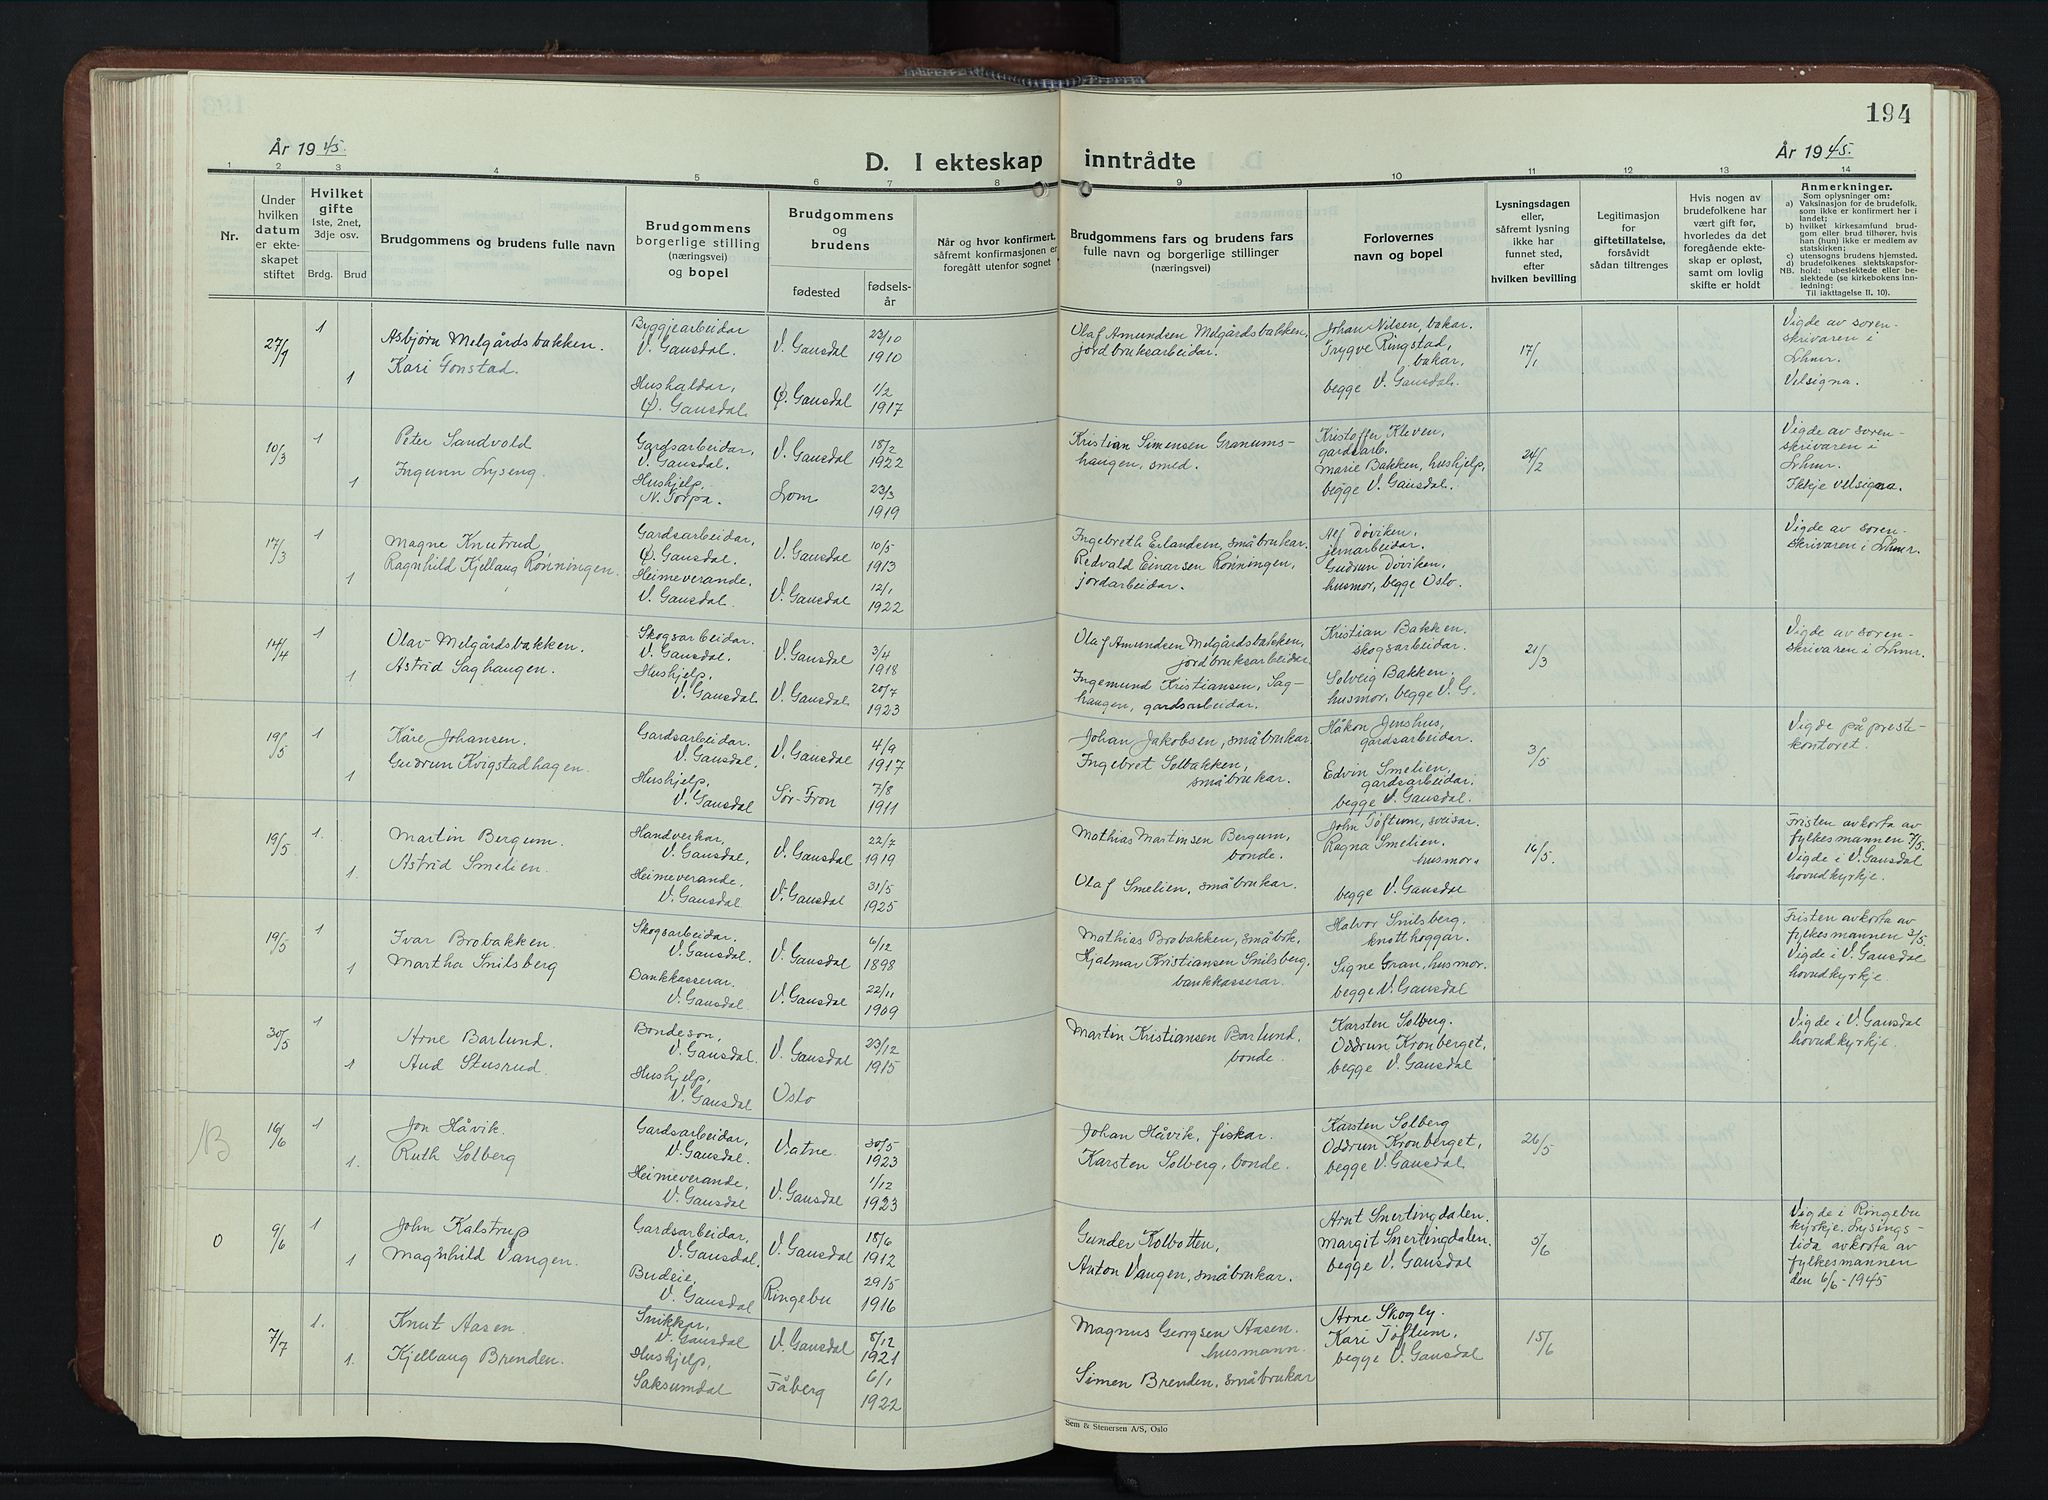 194
År 1945.
År 1945.
D. I ekteskap inntrådte
1 2 3 4 5 6 7 8 9 10 11 12 13 14
Nr.
Under hvilken datum er ekteskapet stiftet
Hvilket gifte 1ste, 2net, 3dje osv.
Brdg. Brud
Brudgommens og brudens fulle navn
Brudgommens borgerlige stilling (næringsvei) og bopel
Brudgommens og brudens
fødested
fødselsår
Når og hvor konfirmert, såfremt konfirmasjonen er foregått utenfor sognet
Brudgommens fars og brudens fars fulle navn og borgerlige stillinger (næringsvei)
Forlovernes navn og bopel
Lysningsdagen eller, såfremt lysning ikke har funnet sted, efter hvilken bevilling
Legitimasjon for giftetillatelse, forsåvidt sådan tiltrenges
Hvis nogen av brudefolkene har vært gift før, hvorledes da det foregående ekteskap er opløst, samt om lovlig skifte er holdt
Anmerkninger.
Som oplysninger om:
a) Vaksinasjon for de brudefolk, som ikke er konfirmert her i landet;
b) hvilket kirkesamfund brudgom eller brud tilhører, hvis han (hun) ikke er medlem av statskirken;
c) utensogns brudens hjemsted.
d) brudefolkenes slektskapsforhold: ubeslektede eller beslektede (se kirkebokens innledning:
NB.
Til iakttagelse II. 10).
27/1 1 Asbjørn Melgårdsbakken. Byggjearbeidar V. Gausdal. V. Gausdal 23/10 1910
1 Kari Gonstad. Hushaldar, Ø. Gausdal. Ø. Gausdal 1/2 1917
Olaf Amundsen Melgårdsbakken, jordbruksarbeidar.
Johan Nilsen, bakar. Trygve Ringstad, bakar, begge V. Gausdal.
17/1
Vigde av sorenskrivaren i Lhmr. Velsigna.
10/3 1 Peter Sandvold Gardsarbeidar, V. Gausdal. V. Gausdal 18/2 1922
1 Ingunn Lyseng. Hushjelp, N. Torpa. Lom 23/3 1919
Kristian Simensen Granumshaugen, smed.
Kristoffer Kleven, gardsarb. Marie Bakken, hushjelp, begge V. Gausdal.
24/2
Vigde av sorenskrivaren i Lhmr. Ikkje velsigna.
17/3 1 Magne Knutrud Gardsarbeidar, Ø. Gausdal. V. Gausdal 10/5 1913
1 Ragnhild Kjellaug Rønningen. Heimeverande. V. Gausdal. V. Gausdal 12/1 1922
Ingebreth Erlandsen, småbrukar. Redvald Einarsen Rønningen, jordarbeidar.
Alf Døviken, jernarbeidar. Gudrun Døviken, husmor, begge Oslo.
Vigde av sorenskrivaren i Lhmr.
14/4 1 Olav Melgårdsbakken. Skogsarbeidar. V. Gausdal. V. Gausdal 3/4 1918
1 Astrid Saghaugen. Hushjelp, V. Gausdal V. Gausdal 20/7 1923
Olaf Amundsen Melgårdsbakken, jordbruksarbeidar
Ingemund Kristiansen, Saghaugen, gardsarbeidar.
Kristian Bakken. skogsarbeidar. Solveig Bakken. husmor, begge V. G.
21/3
Vigde av sorenskrivaren i Lhmr.
19/5 1 Kåre Johansen. Gardsarbeidar. V. Gausdal. V. Gausdal 4/9 1917
1 Gudrun Kvigstadhagen. Hushjelp, V. Gausdal Sør-Fron 7/8 1911
Johan Jakobsen, småbrukar
Ingebret Solbakken, småbrukar.
Håkon Jenshus, gardsarbeidar. Edvin Smelien, gardsarbeidar; begge V. Gausdal.
3/5
Vigde på prestekontoret.
19/5 1. Martin Bergum. Handverkar, V. Gausdal, V. Gausdal 22/7 1919
1. Astrid Smelien. Heimeverande. V. Gausdal V. Gausdal 31/5 1925
Mathias Martinsen Bergum, bonde.
Olaf Smelien, småbrukar.
John Tøftum, sveisar. Ragna Smelien, husmor begge V. Gausdal
16/5.
Fristen avkorta av fylkesmannen 7/5. Vigde i V. Gausdal hovudkyrkje.
19/5 1 Ivar Brobakken. Skogsarbeidar. V. Gausdal. V. Gausdal 6/12 1898
1 Martha Snilsberg Bankkasserar. V. Gausdal V. Gausdal 22/11 1909
Mathias Brobakken, småbrk.
Hjalmar Kristiansen Snilsberg, bankkasserar.
Halvor Snilsberg. knotthoggar. Signe Gran, husmor. begge V. Gausdal
Fristen avkorta av fylkesmannen 3/5. Vigde i V. Gausdal hovudkyrkje.
30/5 1 Arne Barlund. Bondeson, V. Gausdal. V. Gausdal 23/12 1915
1 Aud Stusrud. Hushjelp, V. Gausdal Oslo
Martin Kristiansen Barlund, bonde.
Karsten Solberg. Oddrun Kronberget, begge V. Gausdal
Vigde i V. Gausdal hovudkyrkje.
16/6 1 Jon Håvik. Gardsarbeidar, V. Gausdal. Vatne. 30/5 1923
1. Ruth Solberg Heimeverande, V. Gausdal V. Gausdal 1/12 1923
Johan Håvik, fiskar.
Karsten Solberg, bonde.
Karsten Solberg Oddrun Kronberget, begge V. Gausdal
26/5
O 9/6 1 John Kalstrup Gardsarbeidar, V. Gausdal. V. Gausdal 18/6 1912
1 Magnhild Vangen. Budeie, V. Gausdal Ringebu 29/5 1916
Gunder Kolbotten,
Anton Vangen, småbrukar.
Arnt Snertingdalen. Margit Snertingdalen. begge V. Gausdal
5/6
Vigde i Ringebu kyrkje. Lysingstida avkorta av fylkesmannen den 6/6-1945
7/7 1. Knut Aasen. Snikkar, V. Gausdal V. Gausdal 8/12 1921
1. Kjellaug Brenden. Hushjelp, Saksumdal Fåberg 6/1 1922
Magnus Georgsen Aasen. husmann.
Simen Brenden, småbrukar
Arne Skogly. Kari Tøftum, begge V. Gausdal
15/6
Sem & Stenersen A/S, Oslo